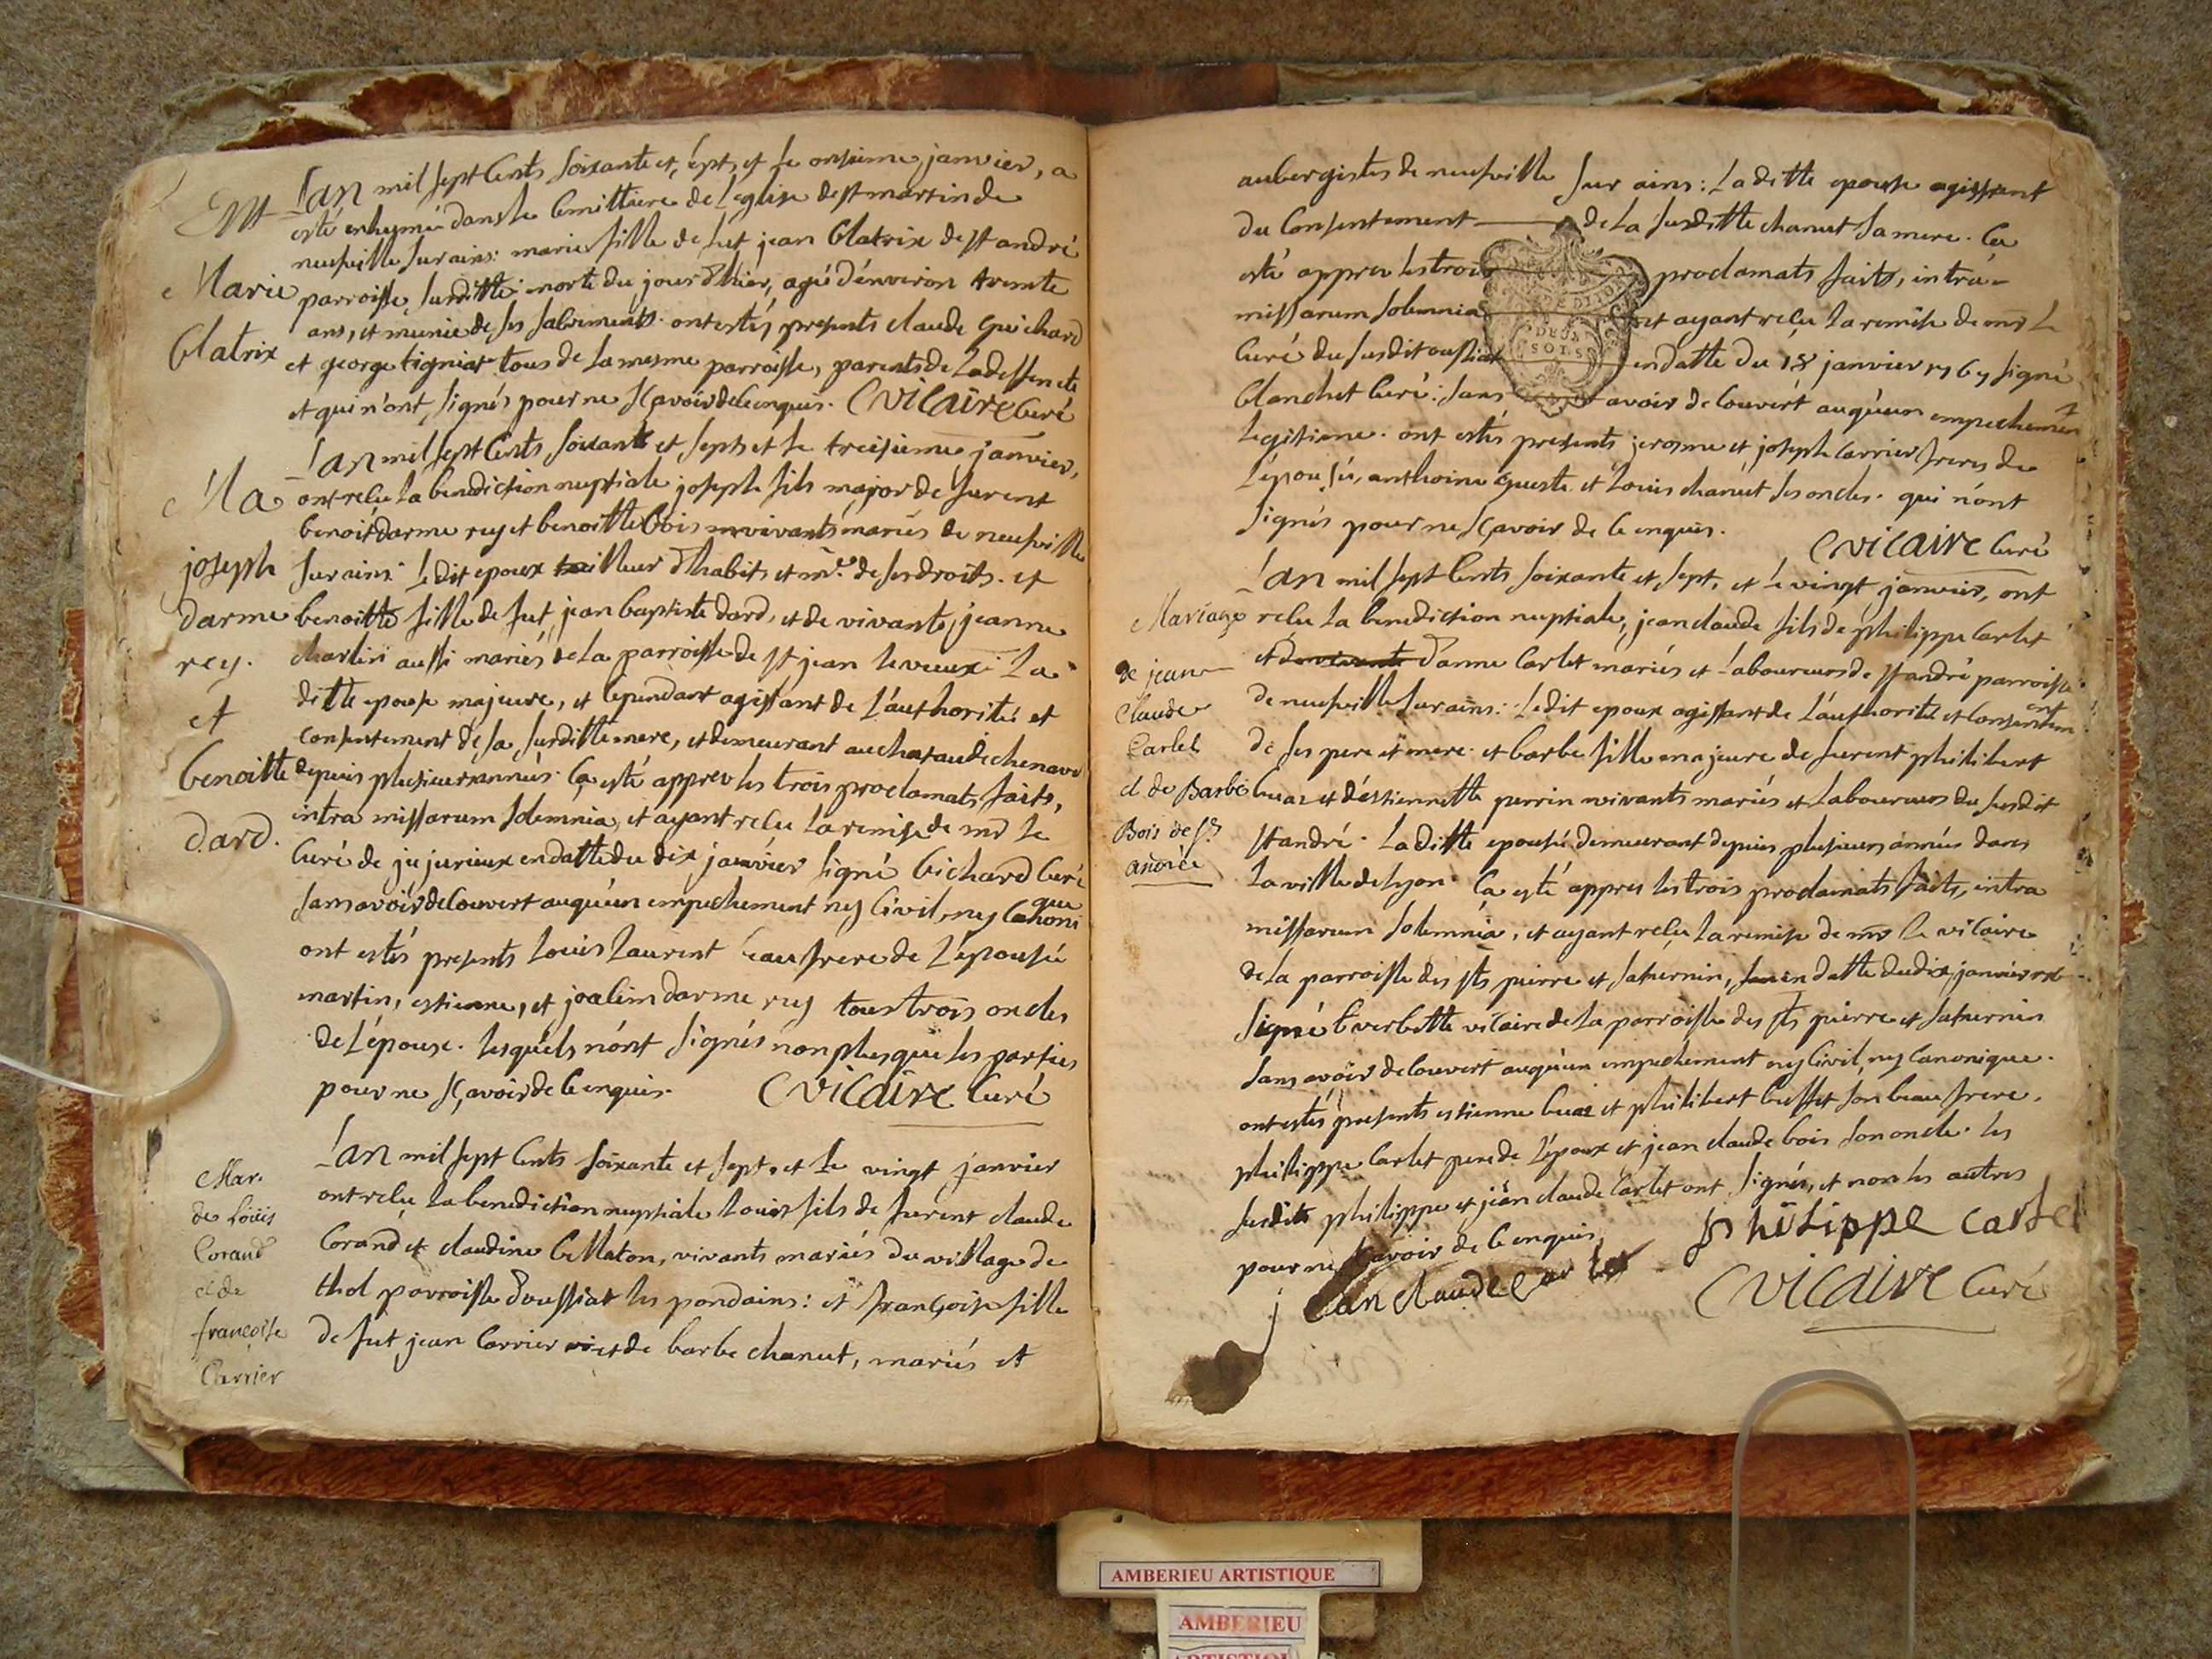 Ent
Marie
Clatrix
L'an mil sept Cents soixante et sept, et le onsieme janvier, a
esté enhumé dans le Cemittiere de l'eglise de st martin de
neufville sur ains: marie fille de fut jean Clatrix de st andré
parroisse susditte: morte du jour d'hier, agé d'environ trente
ans, et munie de ses sacrements. ont estés presents claude guichard
et george tigniat tous de la mesme parroisse, parents de la deffencte
et qui n'ont signés pour ne sçavoir de ce enquis. C vicaire Curé
Ma
joseph
darme
rey.
et
benoitte
dard.
L'an mil sept Cents soixante et sept et le treisieme janvier,
ont reçu la benediction nuptiale joseph fils major de furent
benoit darme rey et benoitte bois vivants mariés de neufville
sur ains: ledit epoux tailleur d'habits et me de ses droits. et
benoitte fille de fut jean baptiste dard, et de vivante, jeanne
charlin aussi mariés de la parroisse de st jean le vieux: la
ditte epouse majeure, et cependant agissant de l'authorité et
consentement de sa susditte mere, et demeurant au chataudechenave
depuis plusieurs années. Ça esté appres les trois proclamats faits,
intra missarum solemnia, et ayant reçu la remise de mr le
Curé de jujurieux en datte du dix janvier signé bichard Curé
sans avoir decouvert auqu'un empechement ny Civil, ny Cahoni
que
ont estés presents Louis Laurent beau frere de l'epousée
martin, estienne, et joalim darme rey tous trois oncles
de l'épouse. lesquels n'ont signés non plus que les parties
pour ne sçavoir de ce enquis. C vicaire Curé
Mar.
de Loüis
Corand
et de
françoise
Carrier
L'an mil sept Cents soixante et sept, et le vingt janvier
ont reçu la benediction nuptiale Louis fils de furent claude
Corand et claudine Bellaton, vivants mariés du village de
thol parroisse d'oussiat les pondains: et françoise fille
de fut jean Carrier et de barbe chanut, mariés et
aubergistes de neufville sur ains: la ditte epouse agissant
du Consentement de la susditte chanut sa mere. Ça
esté appres les trois proclamats faits, intra
missarum solemnia et ayant reçu la remise de mr le
Curé du susdit oussiat en datte du 18 janvier 1767 signé
blanchet Curé: sans avoir decouvert auqu'un empechement
legitisme. ont estés presents jerosme et joseph Carrier freres de
l'épousée, anthoine gueste et Louis chanut ses oncles. qui n'ont
signés pour ne sçavoir de ce enquis.
C vicaire Curé
DEUX
SOLS
Mariage
de jean
Claude
Carlet
et de Barbe
Bois de St
andrée
L'an mil sept Cents soixante et sept, et le vingt janvier, ont
reçu la benediction nuptiale, jean claude fils de philippe Carlet
et de vivante d'anne Carlet mariés et laboureurs de st andré parroisse
de neufville sur ains: ledit epoux agissant de l'authorité et consentem
ent
de ses pere et mere. et barbe fille majeure de furent philibert
buaz et d'estiennette perrin vivants mariés et laboureurs du susdit
st andré. la ditte epousée demeurant depuis plusieurs années dans
la ville de lyon. Ça esté appres les trois proclamats faits, intra
missarum solemnia, et ayant reçu la remise de mr le vicaire
de la parroisse des sts pierre et saturnin, en datte du dix janvier
signé verbette vicaire de la parroisse des sts pierre et saturnin
sans avoir decouvert auqu'un empechement ny Civil, ny Canonique.
ont estés presents estienne buaz et philibert busset son beau frere,
philippe Carlet pere de l'époux et jean claude bois son oncle. les
susdits philippe et jean claude Carlet ont signés, et non les autres
pour ne sçavoir de ce enquis,
philippe carlet
jean claude Carlet
C vicaire Curé
AMBERIEU ARTISTIQUE
AMBERIEU
ARTISTIQU